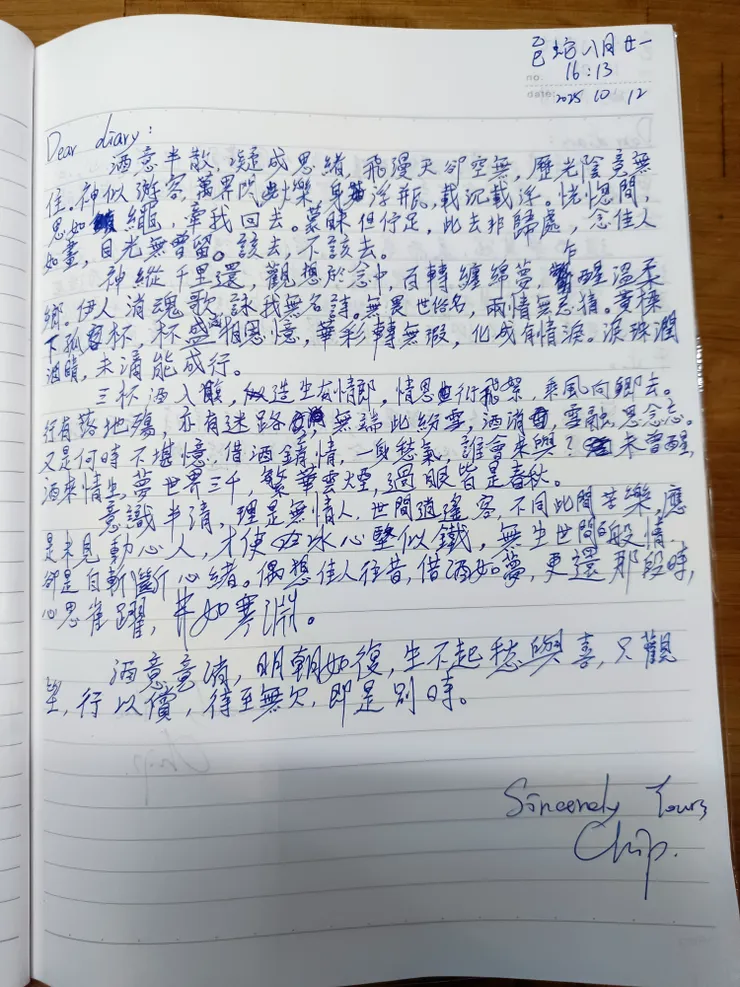 乙巳 蛇 八月廿一
16:13
2025 10 12
Dear diary:
酒意半散,凝成思緒,飛漫天卻空無,歷光陰竟無
住,神似游客,萬界閃爍,身浮萍,載沉載浮。恍惚間,
思如繩,牽我回去。蒙昧但佇足,此去非歸處,念佳人
如畫,目光無曾留。該去,不該去。
神縱千里還,觀想於念中,百轉纏綿夢,乍醒溫柔
鄉。伊人消魂歌,詠我無名詩。無畏世俗名,兩情無忌猜。黃樑
下孤客杯,杯盛滿相思憶,華彩轉無瑕,化成有情淚。淚珠潤
酒晴,未滴能成行。
三杯酒入腹,造生有情郎,情思行飛絮,乘風向鄉去。
行有落地殤,亦有迷路,無端此紛雪,酒消,雪融,思念忘。
又是何時不堪憶,借酒銷情,一身愁氣,誰會來與?未曾醒,
酒來情生,夢世界三千,繁華雲煙,過眼皆是春秋。
意識半清,理是無情人,世間逍遙客,不同此間苦樂,應
是未見動心人,才使冰心堅似鐵,無生世間般情,
卻是自斬斷心緒。偶想佳人往昔,借酒如夢,更還那段時,
心思雀躍,非如寒淵。
酒意意消,明朝如復,生不起愁與喜,只觀
望,行以償,待至無欠,即是別時。
Sincerely Yours
Chip.